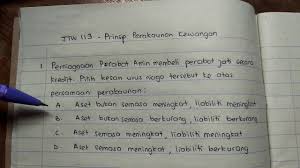 JTW 113 - Prinsip Perakaunan Kewangan
1. Perniagaan Perabot Amin membeli perabot jati secara
kredit. Pilih kesan urus niaga tersebut ke atas
persamaan perakaunan:
A. Aset bukan semasa meningkat, liabiliti meningkat
B. Aset bukan semasa berkurang, liabiliti berkurang
C. Aset semasa meningkat, liabiliti meningkat
D. Aset semasa meningkat, liabiliti berkurang